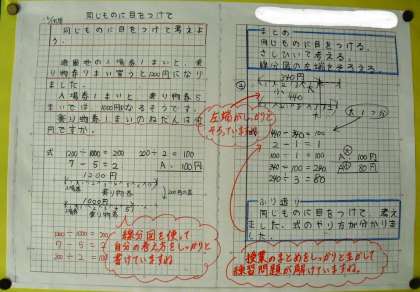 同じものに目をつけて
同じものに目をつけて考えよ
う。
遊園地の入場券1まいと、乗
り物券7まい買うと1200円になり
ました。
入場券1まいと、乗り物券5
まいでは、1000円になるそうです。
乗り物券1まいのねだんは何
円ですか。
式 1200-1000=200 200÷2=100
7-5=2 A. 100円
1200円
入場券 乗り物券
1000円
乗り物券
線分図を使って
自分の考え方をしっかりと
書けていますね
まとめ
同じものに目をつける。
さしひいて考える。
線分図の左端をそろえる。
340円
440
左端がしっかりと
そろっていますね
440-340=100
2-1=1
100÷1=100 A 100円
340-100=240 A 80円
240÷3=80
ふり返り
同じものに目をつけて考え
ました。式のやり方が分かりま
した。
授業のまとめをしっかりと生かして
練習問題が解けていますね。